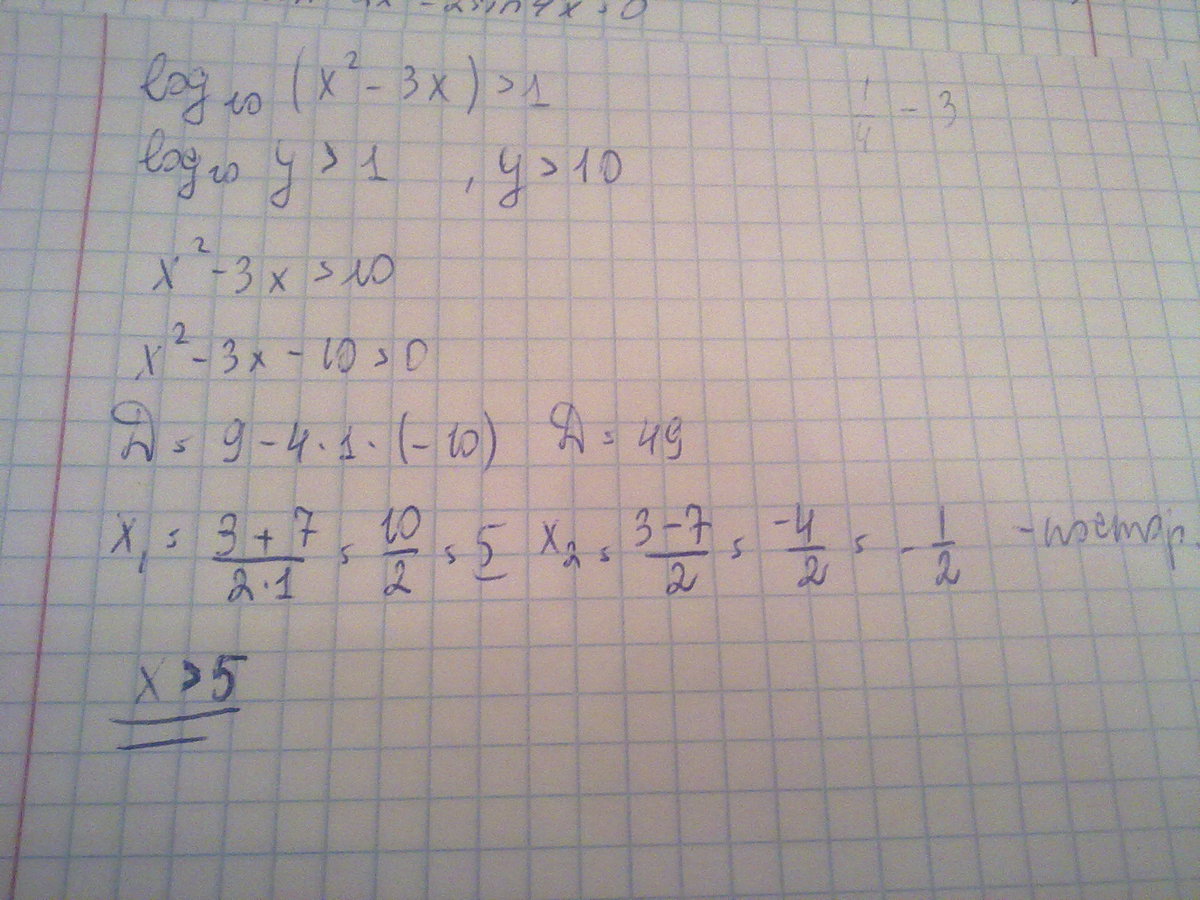 log₁₀ (x² - 3x) > 1
1/4 - 3
log₁₀ y > 1 , y > 10
x² - 3x > 10
x² - 3x - 10 > 0
D = 9 - 4 · 1 · (-10) D = 49
x₁ = (3 + 7)/(2 · 1) = 10/2 = 5 x₂ = (3 - 7)/2 = -4/2 = -1/2
x > 5